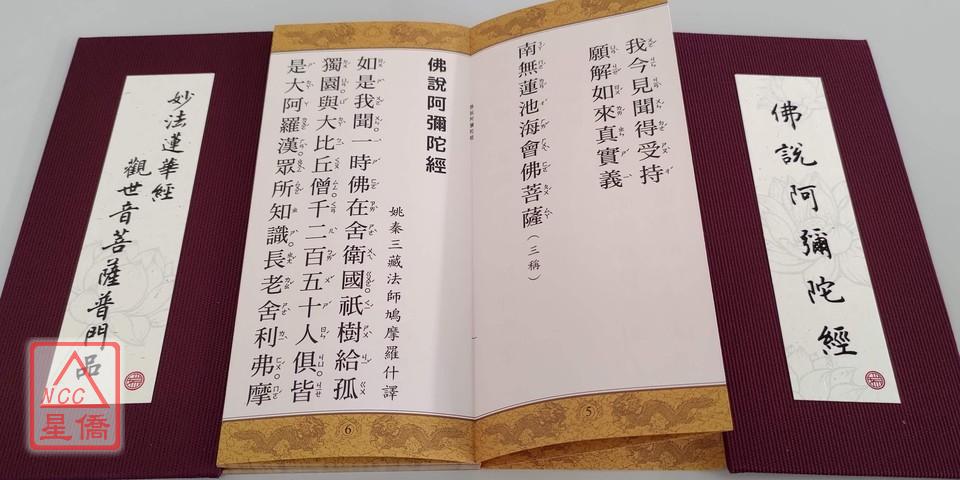 佛說阿彌陀經
我今見聞得受持
願解如來真實義
南無蓮池海會佛菩薩(三稱)
5
佛說阿彌陀經
佛說阿彌陀經
姚秦三藏法師鳩摩羅什譯
如是我聞一時佛在舍衛國祇樹給孤
獨園與大比丘僧千二百五十人俱皆
是大阿羅漢眾所知識長老舍利弗摩
6
妙法蓮華經
觀世音菩薩普門品
NCC
星僑